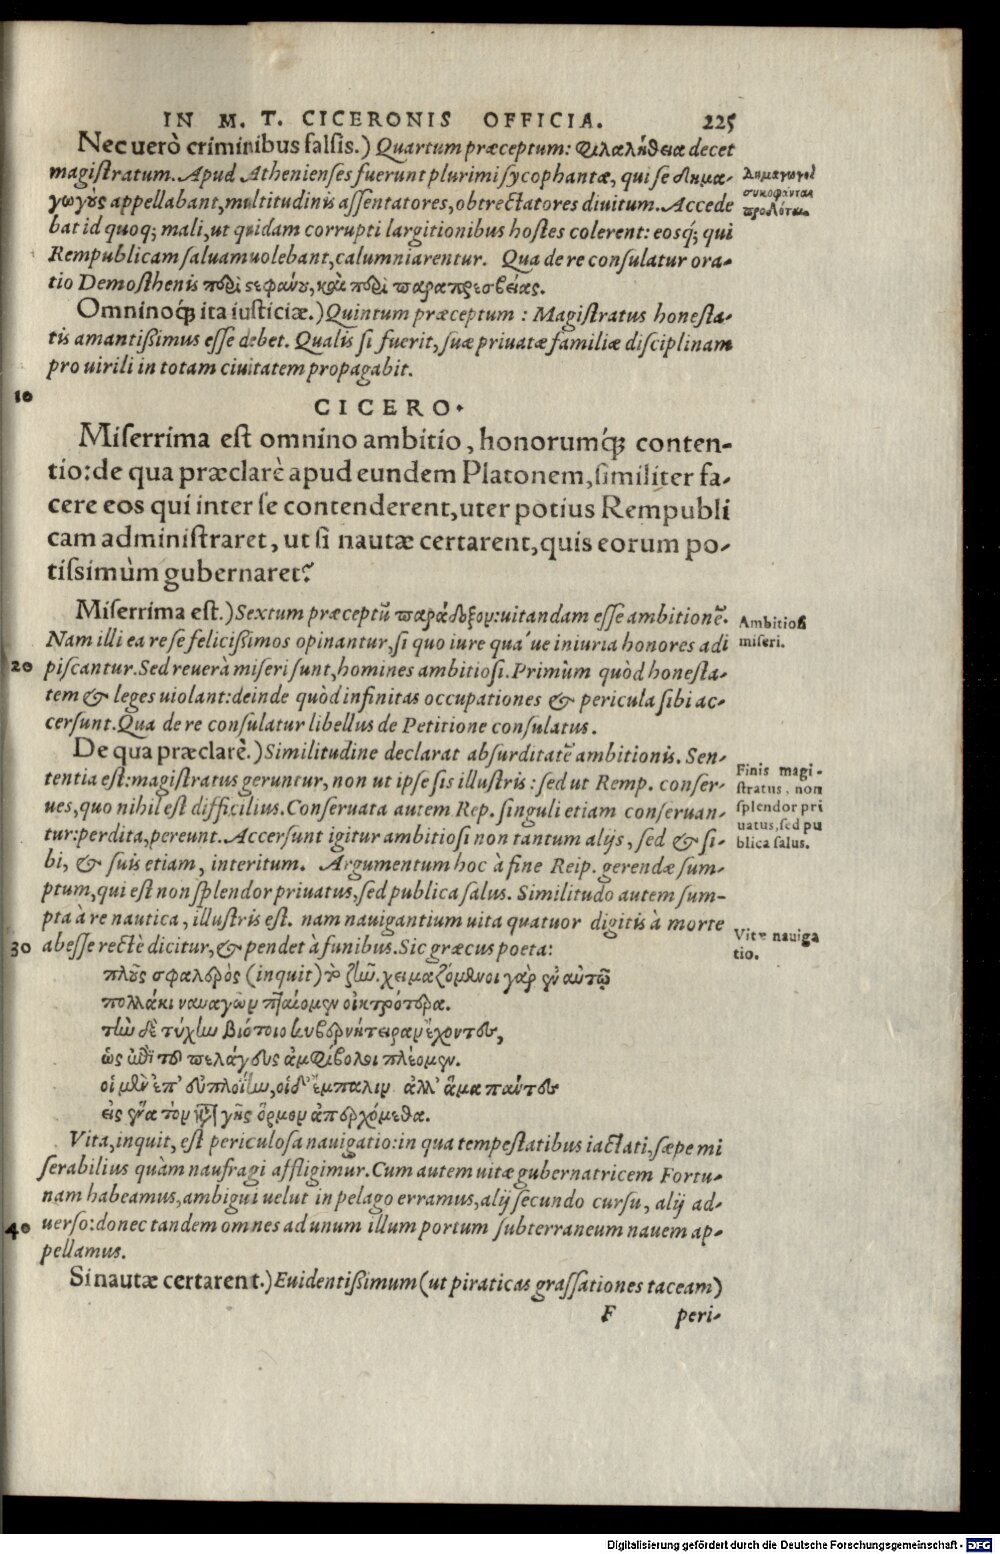 IN M. T. CICERONIS OFFICIA. 225
Nec uerò criminibus falsis.) Quartum præceptum: Φιλαλήθεια decet
magistratum. Apud Athenienses fuerunt plurimi sycophantæ, qui se δημα-
γωγοὺς appellabant, multitudinis assentatores, obtrectatores diuitum. Accede
bat id quoq; mali, ut quidam corrupti largitionibus hostes colerent: eosq; qui
Rempublicam saluam uolebant, calumniarentur. Qua de re consulatur ora-
tio Demosthenis περὶ στεφάνου, καὶ περὶ παραπρεσβείας.
Δημαγωγοὶ
συκοφάνται
προδόται.
Omninoq́; ita iusticiæ.) Quintum præceptum : Magistratus honesta-
tis amantißimus esse debet. Qualis si fuerit, suæ priuatæ familiæ disciplinam
pro uirili in totam ciuitatem propagabit.
10
CICERO.
Miserrima est omnino ambitio, honorumq́; conten-
tio: de qua præclarè apud eundem Platonem, similiter fa-
cere eos qui inter se contenderent, uter potius Rempubli
cam administraret, ut si nautæ certarent, quis eorum po-
tissimùm gubernaret?
Miserrima est.) Sextum præceptũ παράδοξον: uitandam esse ambitionẽ.
Nam illi ea re se felicißimos opinantur, si quo iure qua'ue iniuria honores adi
20 piscantur. Sed reuerà miseri sunt, homines ambitiosi. Primùm quòd honesta-
tem & leges uiolant: deinde quòd infinitas occupationes & pericula sibi ac-
cersunt. Qua de re consulatur libellus de Petitione consulatus.
Ambitiosi
miseri.
De qua præclarè.) Similitudine declarat absurditatẽ ambitionis. Sen-
tentia est: magistratus geruntur, non ut ipse sis illustris: sed ut Remp. conser-
ues, quo nihil est difficilius. Conseruata autem Rep. singuli etiam conseruan-
tur: perdita, pereunt. Accersunt igitur ambitiosi non tantum alijs, sed & si-
bi, & suis etiam, interitum. Argumentum hoc à fine Reip. gerendæ sum-
ptum, qui est non splendor priuatus, sed publica salus. Similitudo autem sum-
pta à re nautica, illustris est. nam nauigantium uita quatuor digitis à morte
30 abesse rectè dicitur, & pendet à funibus. Sic græcus poeta:
Finis magi-
stratus, non
splendor pri
uatus, sed pu
blica salus.
Vitæ nauiga
tio.
πλοῦς σφαλερὸς (inquit) τὸ ζῆν. χειμαζόμενοι γὰρ ἐν αὐτῷ
πολλάκι ναυαγῶν πταίομεν οἰκτρότερα.
τὴν δὲ τύχην βιότοιο κυβερνήτειραν ἔχοντες,
ὡς ἐπὶ τοῦ πελάγους ἀμφίβολοι πλέομεν.
οἱ μὲν ἐπ' εὐπλοΐην, οἱ δ' ἔμπαλιν ἀλλ' ἅμα πάντες
εἰς ἕνα τὸν κατὰ γῆς ὅρμον ἀπερχόμεθα.
Vita, inquit, est periculosa nauigatio: in qua tempestatibus iactati, sæpe mi
serabilius quàm naufragi affligimur. Cum autem uitæ gubernatricem Fortu-
nam habeamus, ambigui uelut in pelago erramus, alij secundo cursu, alij ad-
40 uerso: donec tandem omnes ad unum illum portum subterraneum nauem ap-
pellamus.
Si nautæ certarent.) Euidentißimum (ut piraticas grassationes taceam)
F peri-
Digitalisierung gefördert durch die Deutsche Forschungsgemeinschaft - DFG